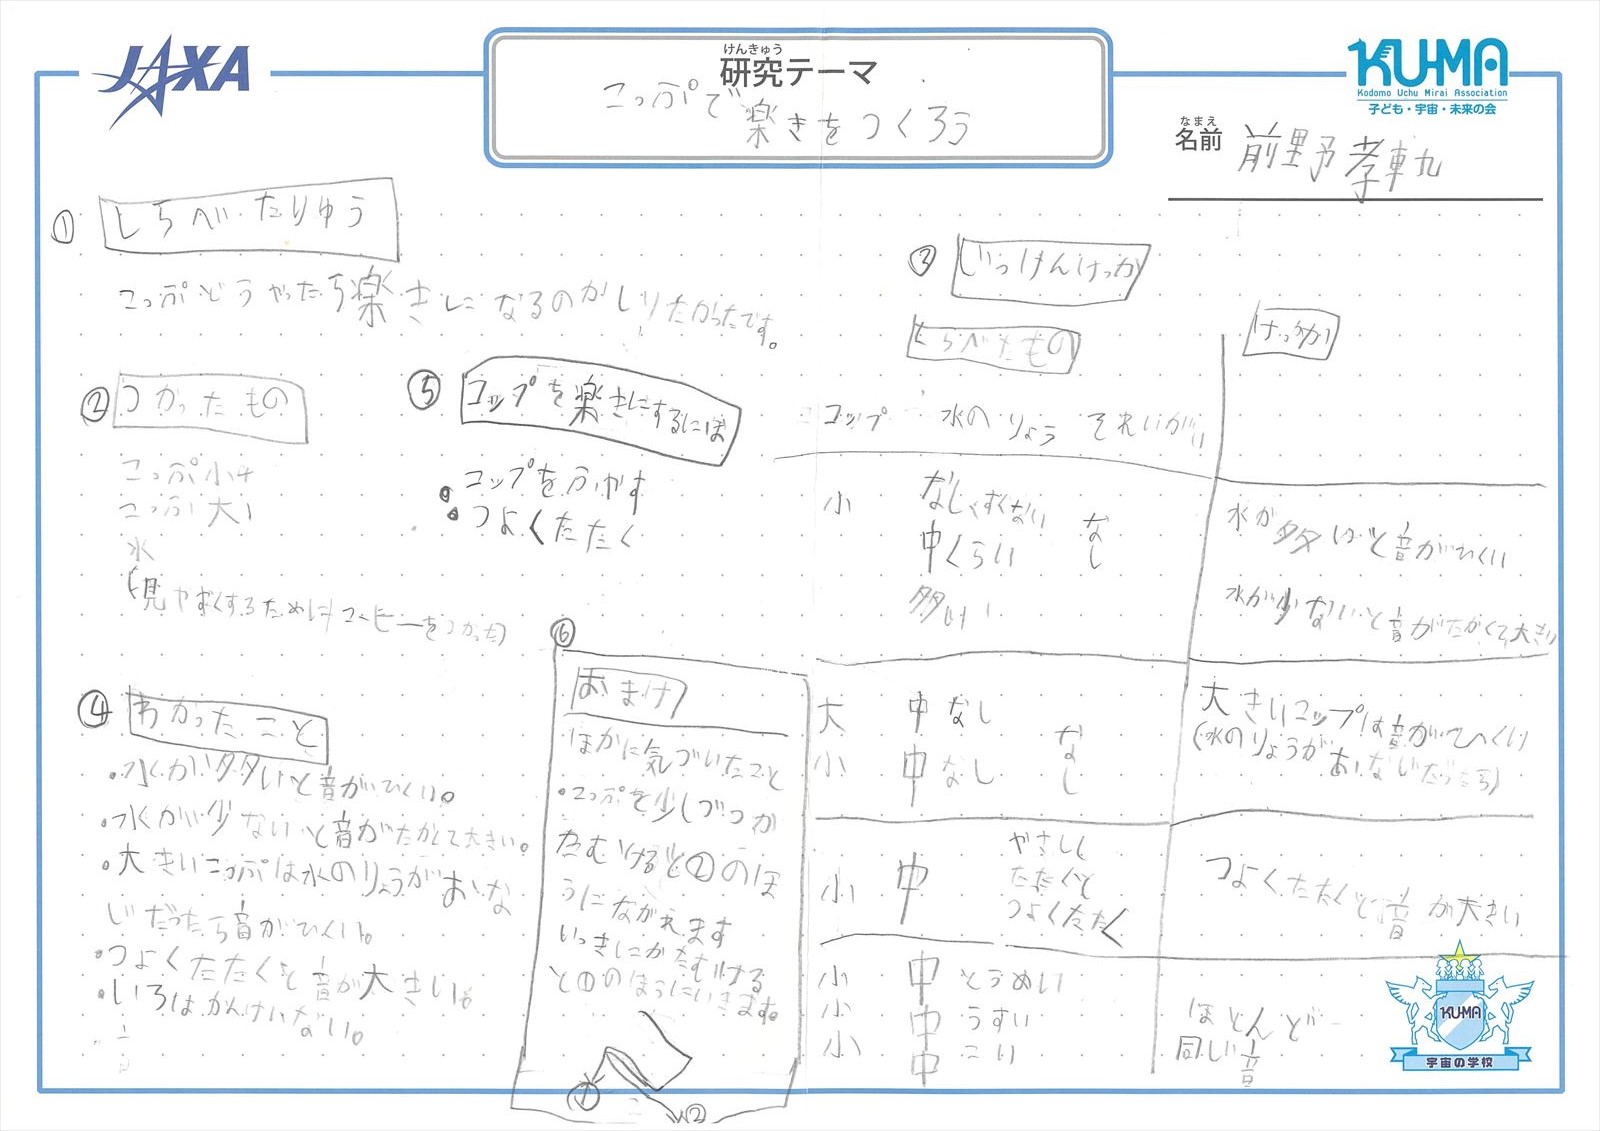 JAXA
けんきゅう
研究テーマ
こっぷで楽きをつくろう
KUMA
Kodomo Uchu Mirai Association
子ども・宇宙・未来の会
なまえ
名前 前野孝車九
① しらべたりゆう
こっぷどうやったら楽きになるのかしりたかったです。
② つかったもの
こっぷ小4
こっぷ大1
水
(見やすくするためにコーヒーをつかった)
⑤ コップを楽きにするには
・コップをふやす
・つよくたたく
③ じっけんけっか
しらべたもの
けっか
コップ 水のりょう それいがい
小 なし、すくない なし
中くらい
多い
水が多いと音がひくい
水が少ないと音がたかくて大きい
大 中 なし なし
小 中 なし
大きいコップは音がひくい
(水のりょうがおなじだったら)
小 中 やさしく
たたくと
つよくたたく
つよくたたくと音が大きい
小 中 とうめい
小 中 うすい
小 中 こい
ほとんど
同じ音
④ わかったこと
・水が多いと音がひくい。
・水が少ないと音がたかくて大きい。
・大きいこっぷは水のりょうがおな
じだったら音がひくい。
・つよくたたくと音が大きい。
・いろはかんけいない。
⑥
おまけ
ほかに気づいたこと
・こっぷを少しづつか
たむけると②のほ
うにながれます
いっきにかたむける
と①のほうにいきます。
①
②
KUMA
宇宙の学校